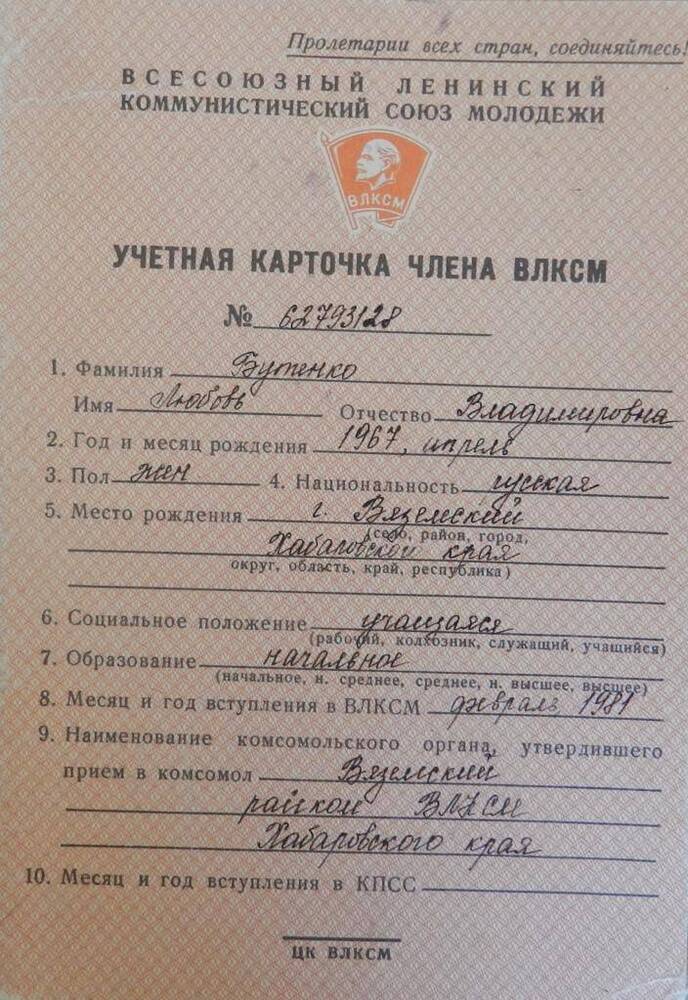 Пролетарии всех стран, соединяйтесь!
ВСЕСОЮЗНЫЙ ЛЕНИНСКИЙ
КОММУНИСТИЧЕСКИЙ СОЮЗ МОЛОДЕЖИ
ВЛКСМ
УЧЕТНАЯ КАРТОЧКА ЧЛЕНА ВЛКСМ
№ 62793128
1. Фамилия Бутенко
Имя Любовь Отчество Владимировна
2. Год и месяц рождения 1967, апрель
3. Пол жен 4. Национальность русская
5. Место рождения г. Вяземский
(село, район, город,
Хабаровской края
округ, область, край, республика)
6. Социальное положение учащаяся
(рабочий, колхозник, служащий, учащийся)
7. Образование начальное
(начальное, н. среднее, среднее, н. высшее, высшее)
8. Месяц и год вступления в ВЛКСМ февраль 1981
9. Наименование комсомольского органа, утвердившего
прием в комсомол Вяземский
райком ВЛКСМ
Хабаровского края
10. Месяц и год вступления в КПСС
ЦК ВЛКСМ